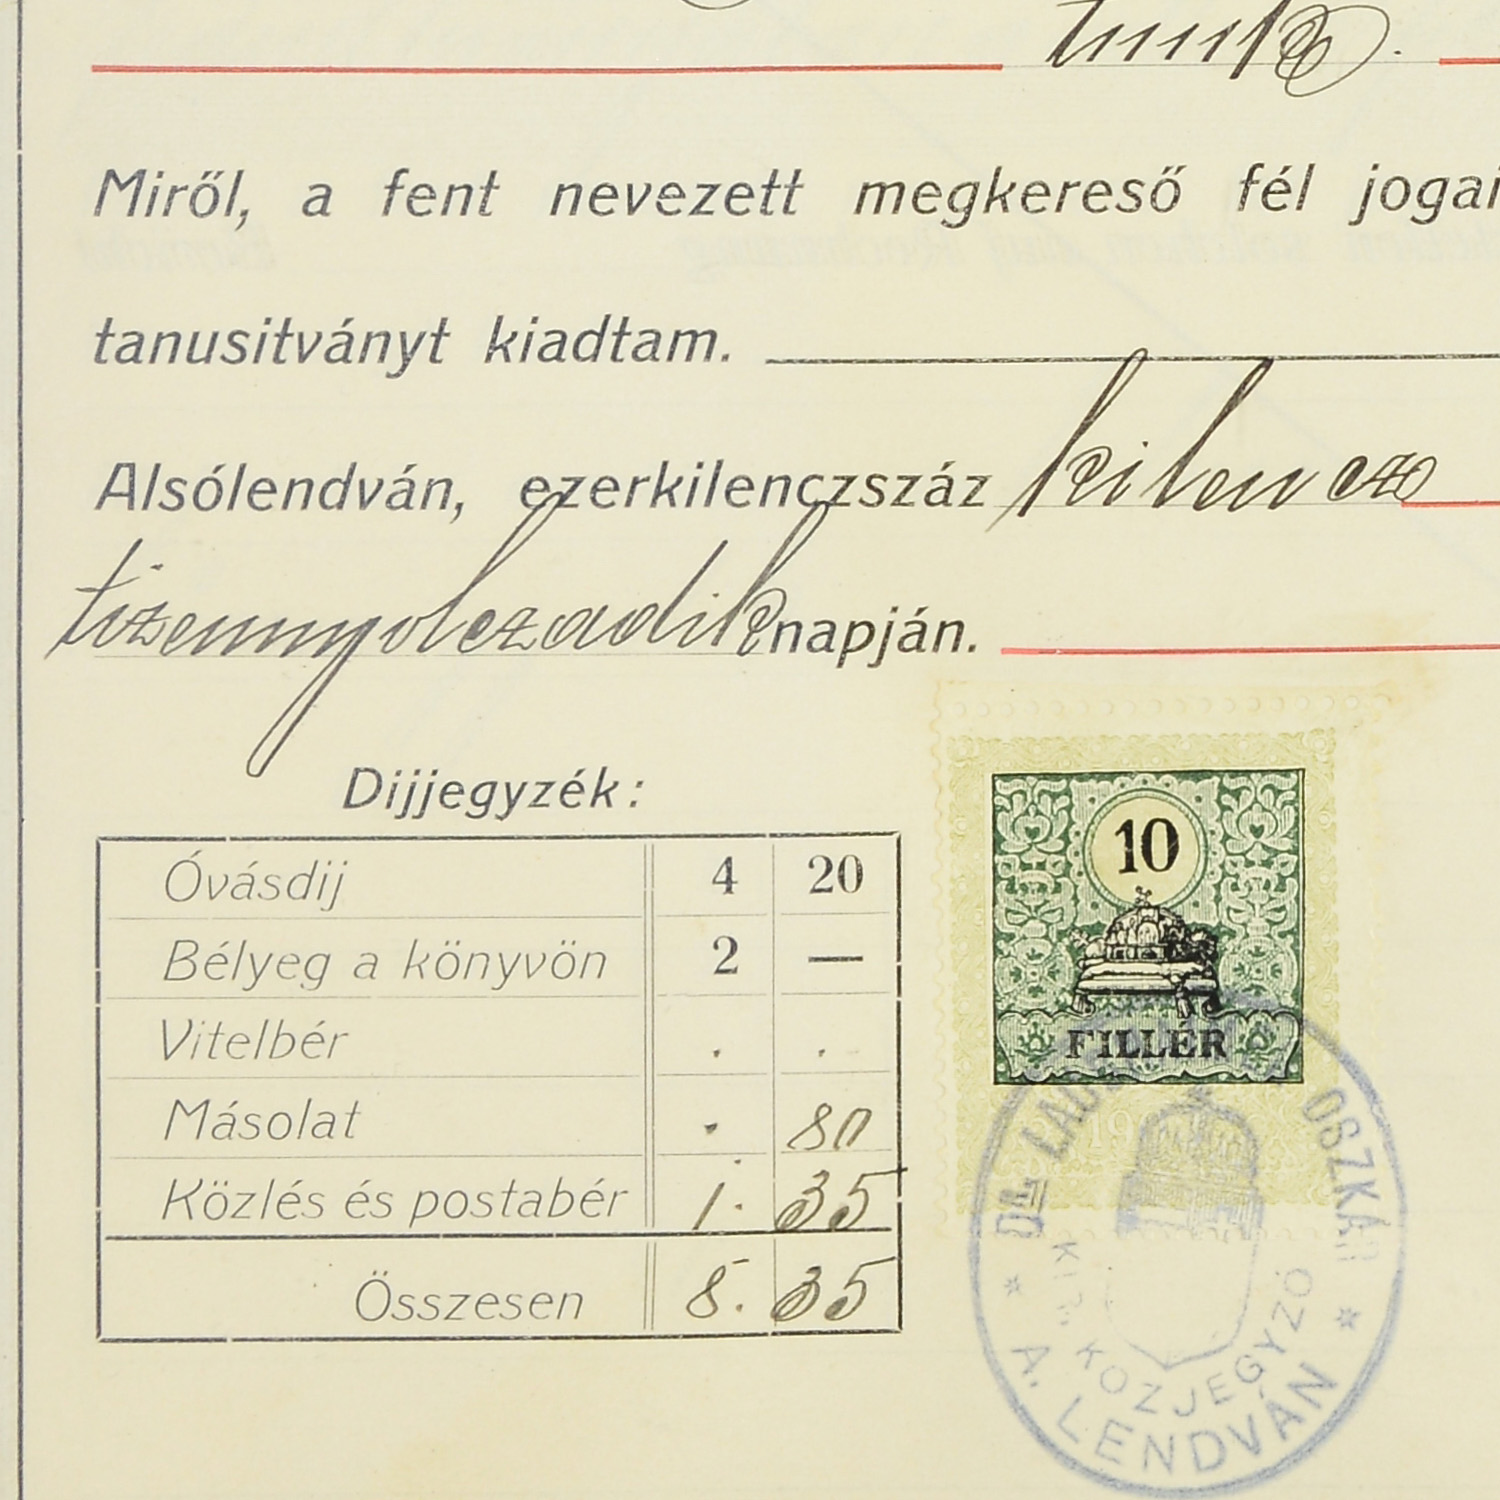 Miről, a fent nevezett megkereső fél jogai
tanusitványt kiadtam.
Alsólendván, ezerkilenczszáz kilencz
tizennyolczadik napján.
Dijjegyzék:
Óvásdij 4 20
Bélyeg a könyvön 2 —
Vitelbér . .
Másolat . 80
Közlés és postabér 1. 35
Összesen 8. 35
10
FILLÉR
DR. OSZKÁR
KIR. KÖZJEGYZŐ
A. LENDVÁN